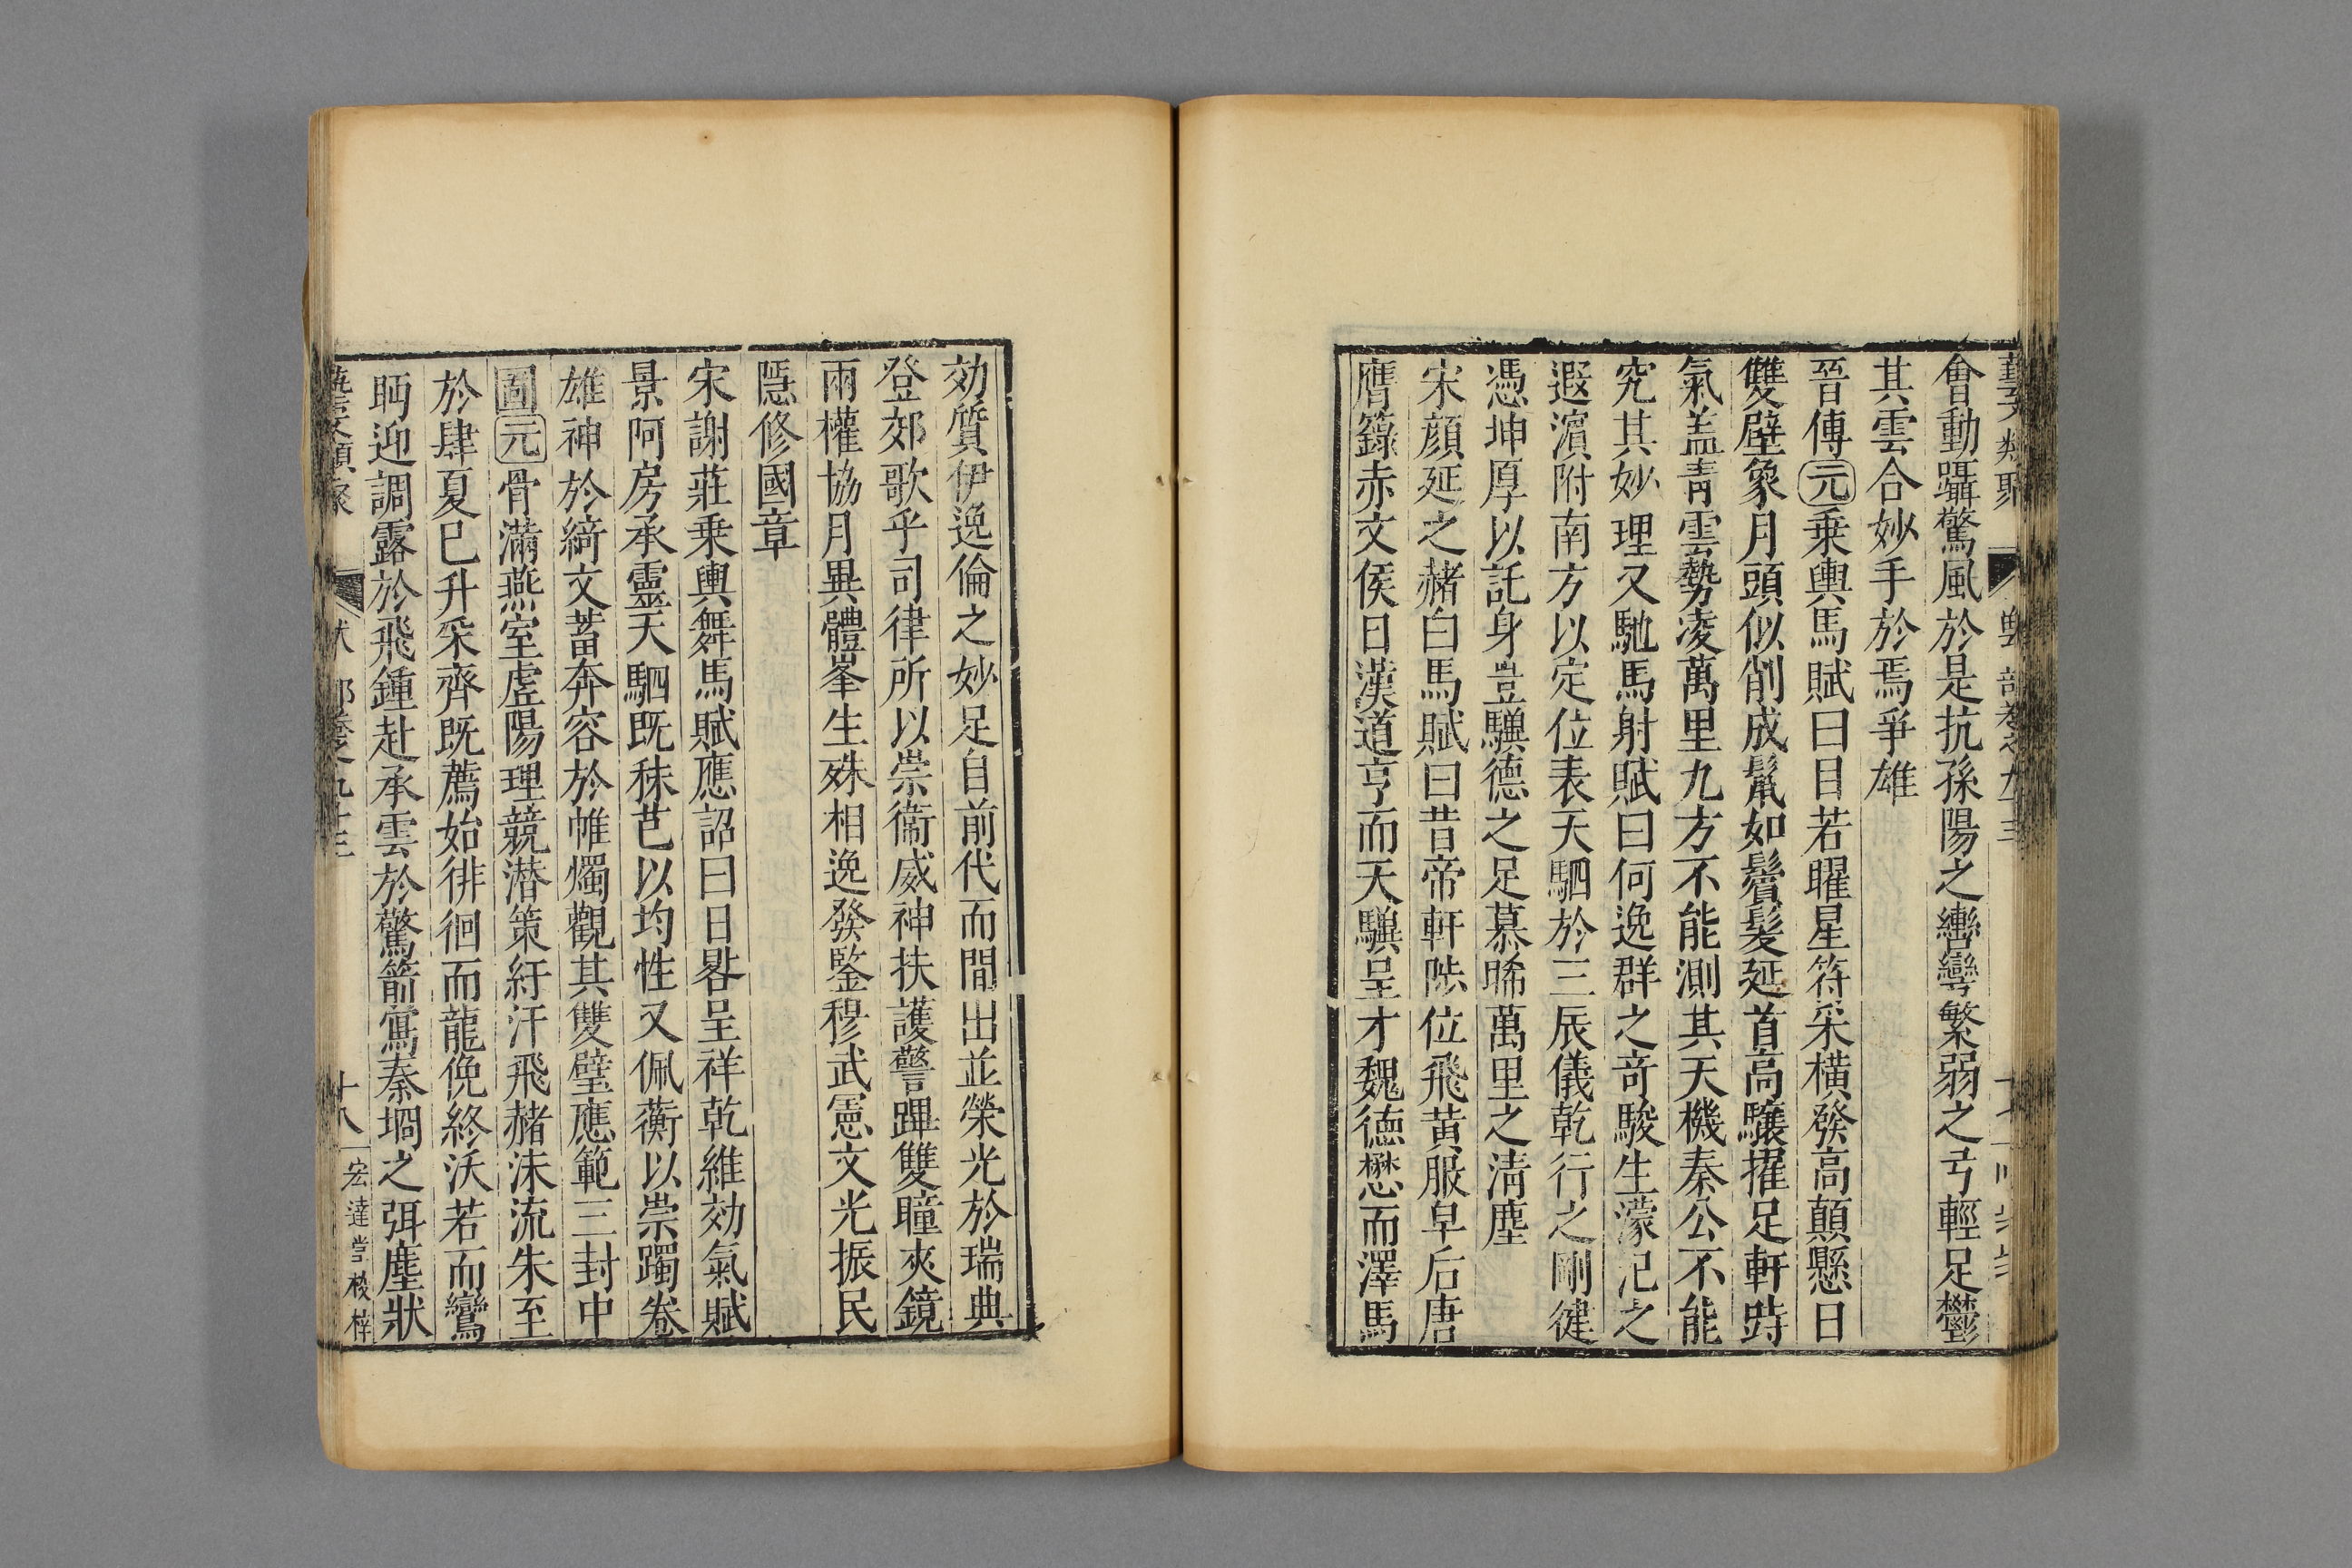 會動躡驚風於是抗孫陽之轡彎繁弱之弓輕足鬱
其雲合妙手於焉爭雄
晉傅元乗輿馬賦曰目若曜星符采横發高顛懸日
雙壁象月頭似削成鬣如鬢髮延首高驤擢足軒跱
氣盖青雲勢凌萬里九方不能測其天機秦公不能
究其妙理又馳馬射賦曰何逸群之竒駿生濛汜之
遐濵附南方以定位表天駟於三辰儀乾行之剛健
憑坤厚以託身豈驥德之足慕晞萬里之清塵
宋顔延之赭白馬賦曰昔帝軒陟位飛黄服皁后唐
膺籙赤文侯日漢道亨而天驥呈才魏德懋而澤馬
効質伊逸倫之妙足自前代而間出並榮光於瑞典
登郊歌乎司律所以崇衛威神扶護警蹕雙瞳夾鏡
兩權協月異體峯生殊相逸發鑒穆武憲文光振民
隱修國章
宋謝莊乗輿舞馬賦應詔曰日晷呈祥乾維効氣賦
景阿房承靈天駟既秣芑以均性又佩蘅以崇躅卷
雄神於綺文蓄奔容於帷燭觀其雙璧應範三封中
圖元骨滿燕室虛陽理競潜策紆汗飛赭沬流朱至
於肆夏巳升采齊既薦始徘徊而龍俛終沃若而鸞
眄迎調露於飛鍾赴承雲於驚箭寫秦坰之弭塵狀
藝文類聚 獸部卷之九十三 十八 宏達堂校梓